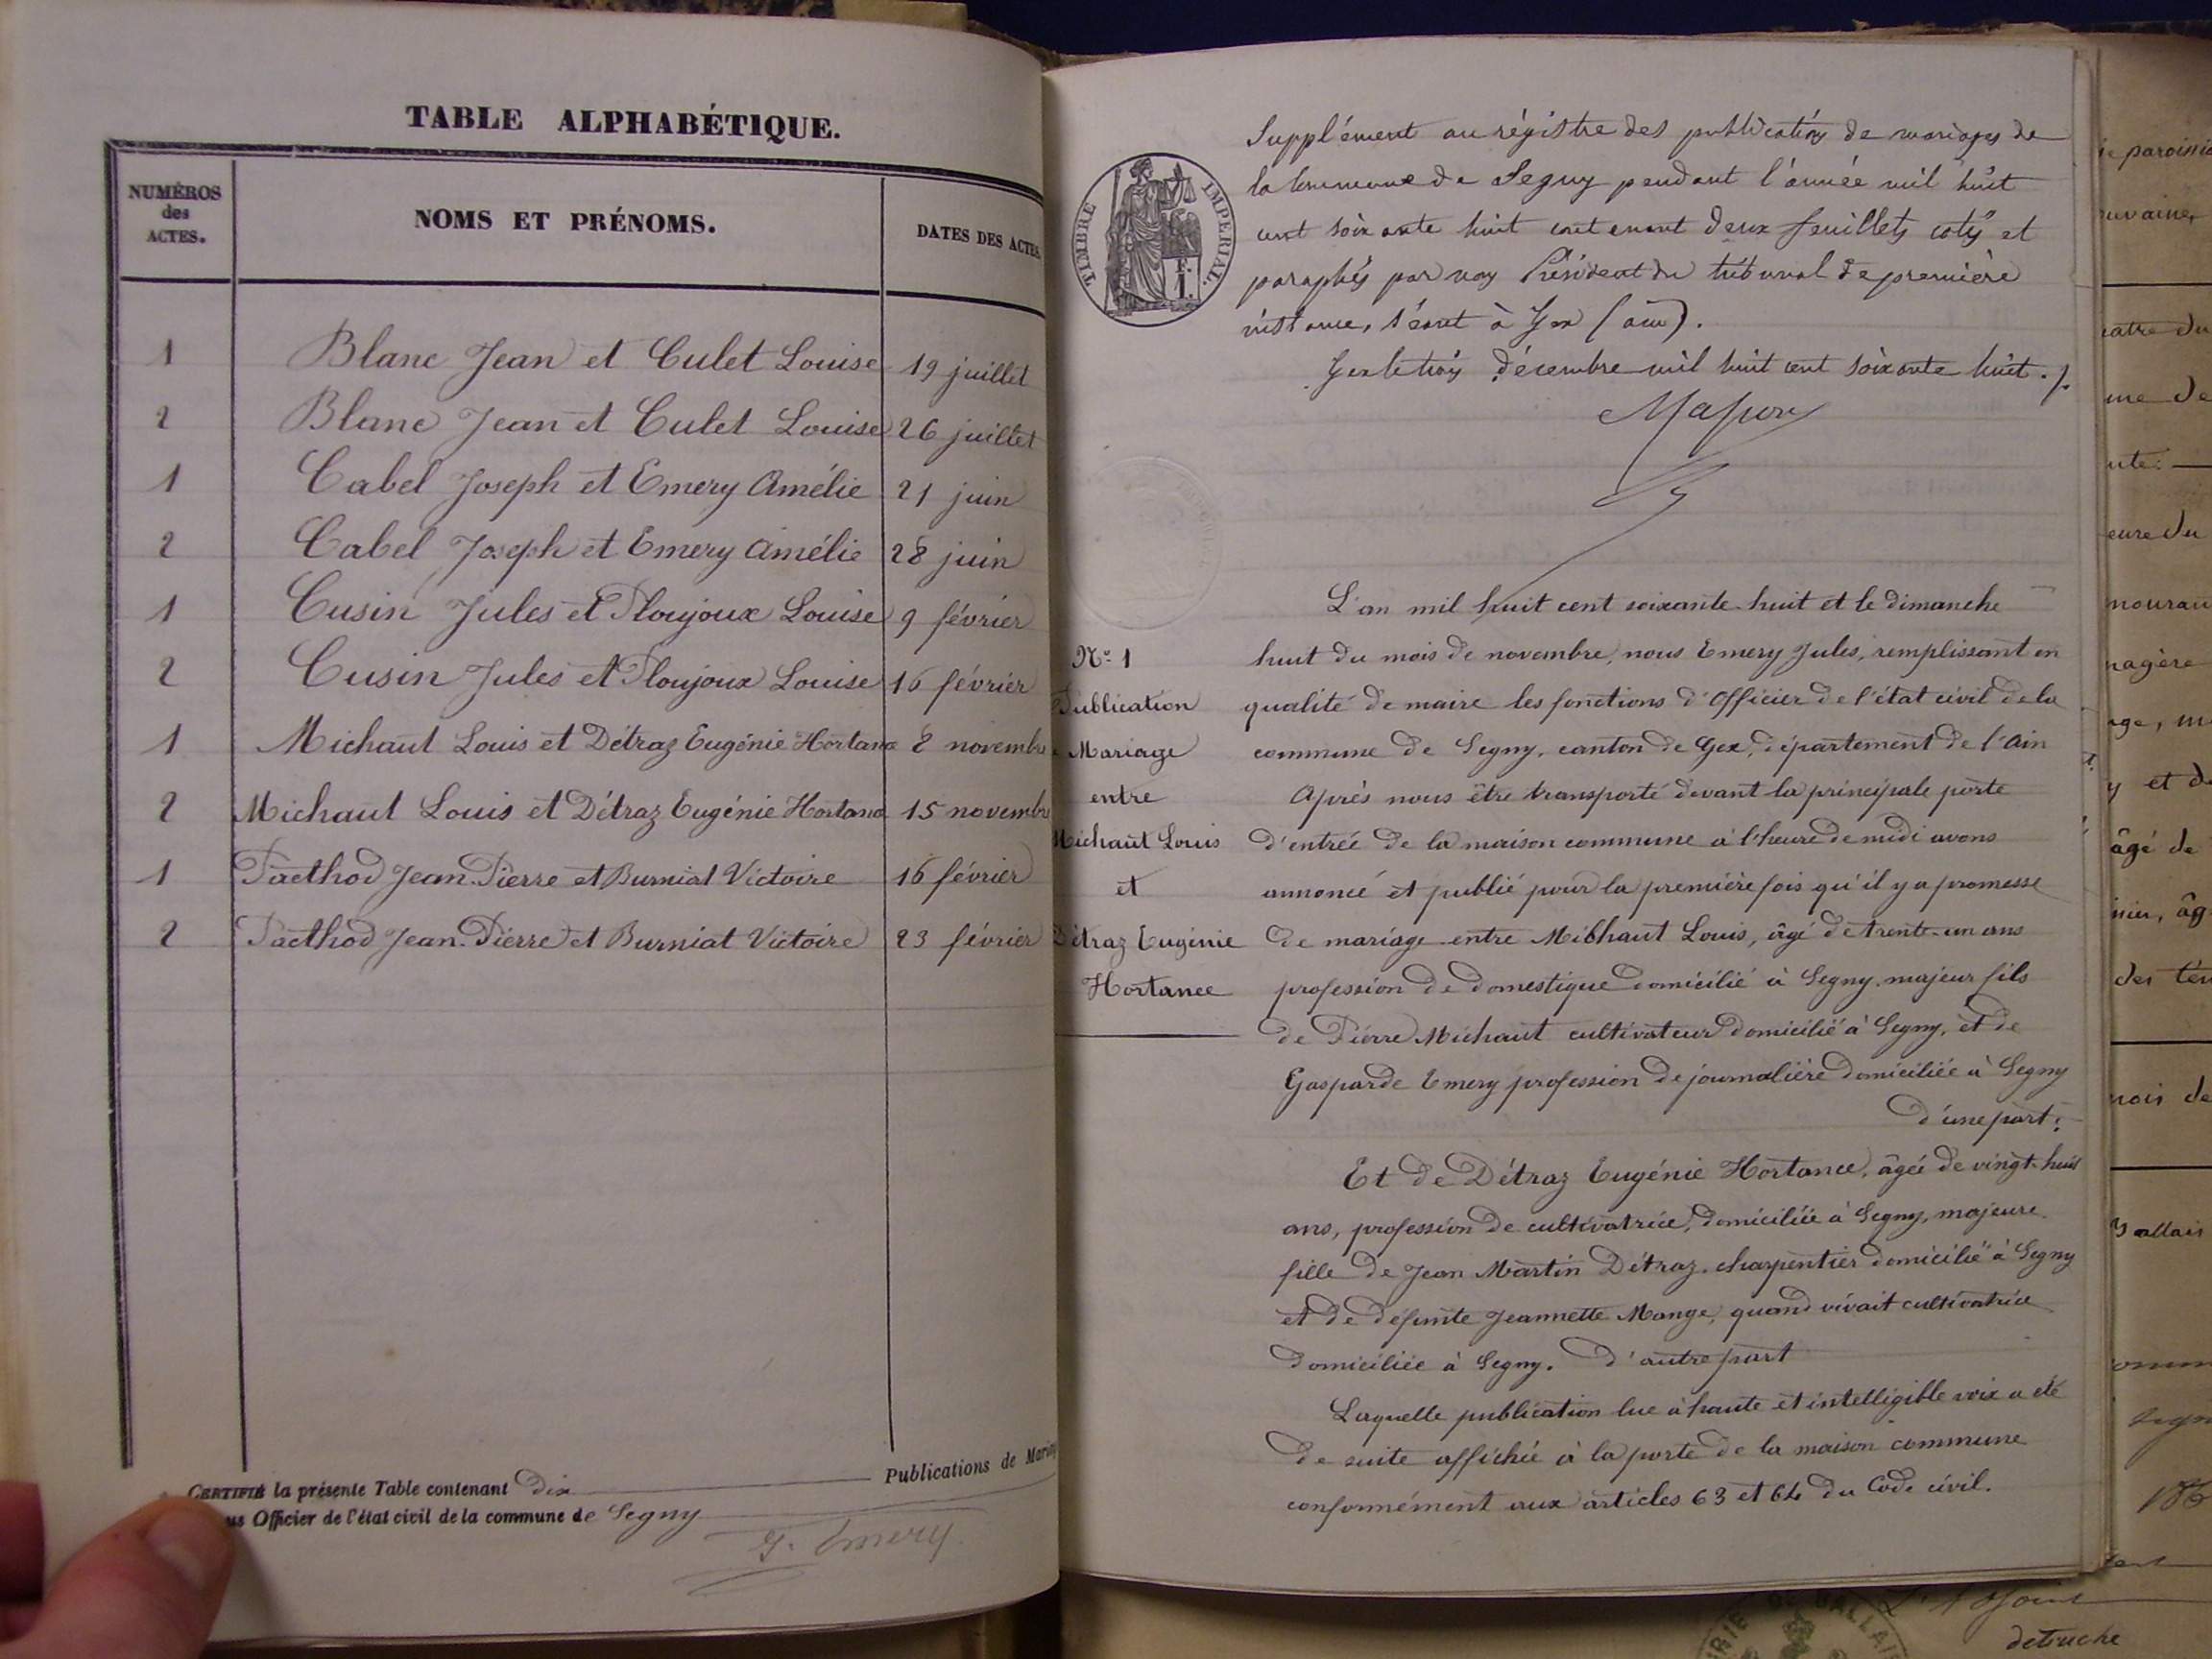 TABLE ALPHABÉTIQUE.
NUMÉROS
des
ACTES.
NOMS ET PRÉNOMS.
DATES DES ACTES
1 Blanc Jean et Culet Louise 19 juillet
2 Blanc Jean et Culet Louise 26 juillet
1 Cabel Joseph et Emery Amélie 21 juin
2 Cabel Joseph et Emery Amélie 28 juin
1 Cusin Jules et Ploujoux Louise 9 février
2 Cusin Jules et Ploujoux Louise 16 février
1 Michaut Louis et Détraz Eugénie Hortance 8 novembre
2 Michaut Louis et Détraz Eugénie Hortance 15 novembre
1 Paethod Jean-Pierre et Burniat Victoire 16 février
2 Paethod Jean-Pierre et Burniat Victoire 23 février
CERTIFIÉ la présente Table contenant dix Publications de Mariag
us Officier de l'état civil de la commune de Segny
J. Emery
TIMBRE IMPERIAL.
Supplément au régistre des publications de mariages de
la Commune de Segny pendant l'année mil huit
cent soixante huit contenant deux feuillets cotés et
paraphés par nous Président du tribunal de première
instance, séant à Gex (ain).
Gex le trois décembre mil huit cent soixante huit ./.
N.º 1
Publication
Mariage
entre
Michaut Louis
et
Détraz Eugénie
Hortance
L'an mil huit cent soixante-huit et le dimanche
huit du mois de novembre, nous Emery Jules, remplissant en
qualité de maire les fonctions d'Officier de l'état civil de la
commune de Segny, canton de Gex, département de l'Ain
Après nous être transporté devant la principale porte
d'entrée de la maison commune à l'heure de midi avons
annoncé et publié pour la première fois qu'il y a promesse
de mariage entre Michaut Louis, âgé de trente-un ans
profession de domestique domicilié à Segny, majeur fils
de Pierre Michaut cultivateur domicilié à Segny, et de
Gasparde Emery profession de journalière domiciliée à Segny
d'une part;
Et de Détraz Eugénie Hortance, âgée de vingt-huit
ans, profession de cultivatrice, domiciliée à Segny, majeure
fille de Jean Martin Détraz, charpentier domicilié à Segny
et de défunte Jeannette Mange, quand vivait cultivatrice
domiciliée à Segny. d'autre part
Laquelle publication lue à haute et intelligible voix a été
de suite affichée à la porte de la maison commune
conformément aux articles 63 et 64 du Code civil.
ie paroissia
me de
eure du
mouran
nagère
age, m
y et de
âgé de
des tém
mois de